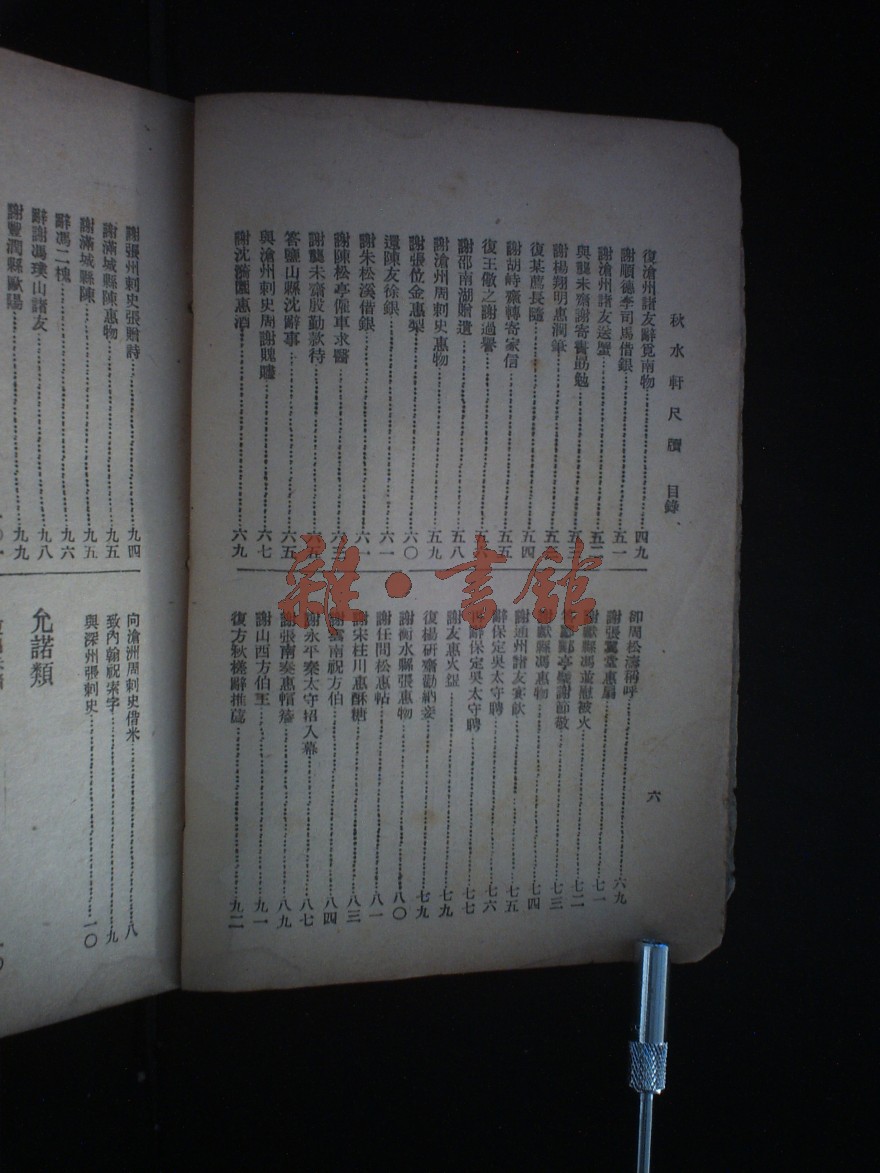 秋水軒尺牘 目錄
六
復滄州諸友辭覓南物 四九
謝順德李司馬借銀 五一
謝滄州諸友送蟹 五二
與龔未齋謝寄書勗勉 五三
謝楊翔明惠潤筆 五三
復某薦長隨 五四
謝胡峙齋轉寄家信 五五
復王儆之謝過譽 五六
謝邵南湖贈遺 五八
謝滄州周刺史惠物 五九
謝張位金惠梨 六〇
還陳友徐銀 六一
謝朱松溪借銀 六一
謝陳松亭僱車求醫 六三
謝龔未齋殷勤款待
答鹽山縣沈辭事 六五
與滄州刺史周謝賻 六七
謝沈瀹園惠酒 六九
卻周松濤稱呼 六九
謝張 惠扇 七一
謝獻縣馮並慰被火 七二
謝節敬 七三
謝獻縣馮惠物 七四
謝通州諸友宴飲 七五
辭保定吳太守聘 七六
再辭保定吳太守聘 七七
謝友惠火腿 七九
復楊研齋勸納妾 七九
謝衡水縣張惠物 八〇
謝任間松惠帖 八一
謝宋桂川惠酥糖 八三
謝雲南祝方伯 八四
謝永平秦太守招入幕 八七
謝張南奏惠帽簷 八九
謝山西方伯王 九一
復方秋槎辭推薦 九二
謝張州刺史張贈詩 九四
謝滿城縣陳惠物 九五
謝滿城縣陳 九五
辭馮二槐 九六
辭謝馮璞山諸友 九八
謝豐潤縣歐陽 九九
向滄洲周刺史借米 八
致內翰祝索字 九
與深州張刺史 一〇
允諾類
雜·書館